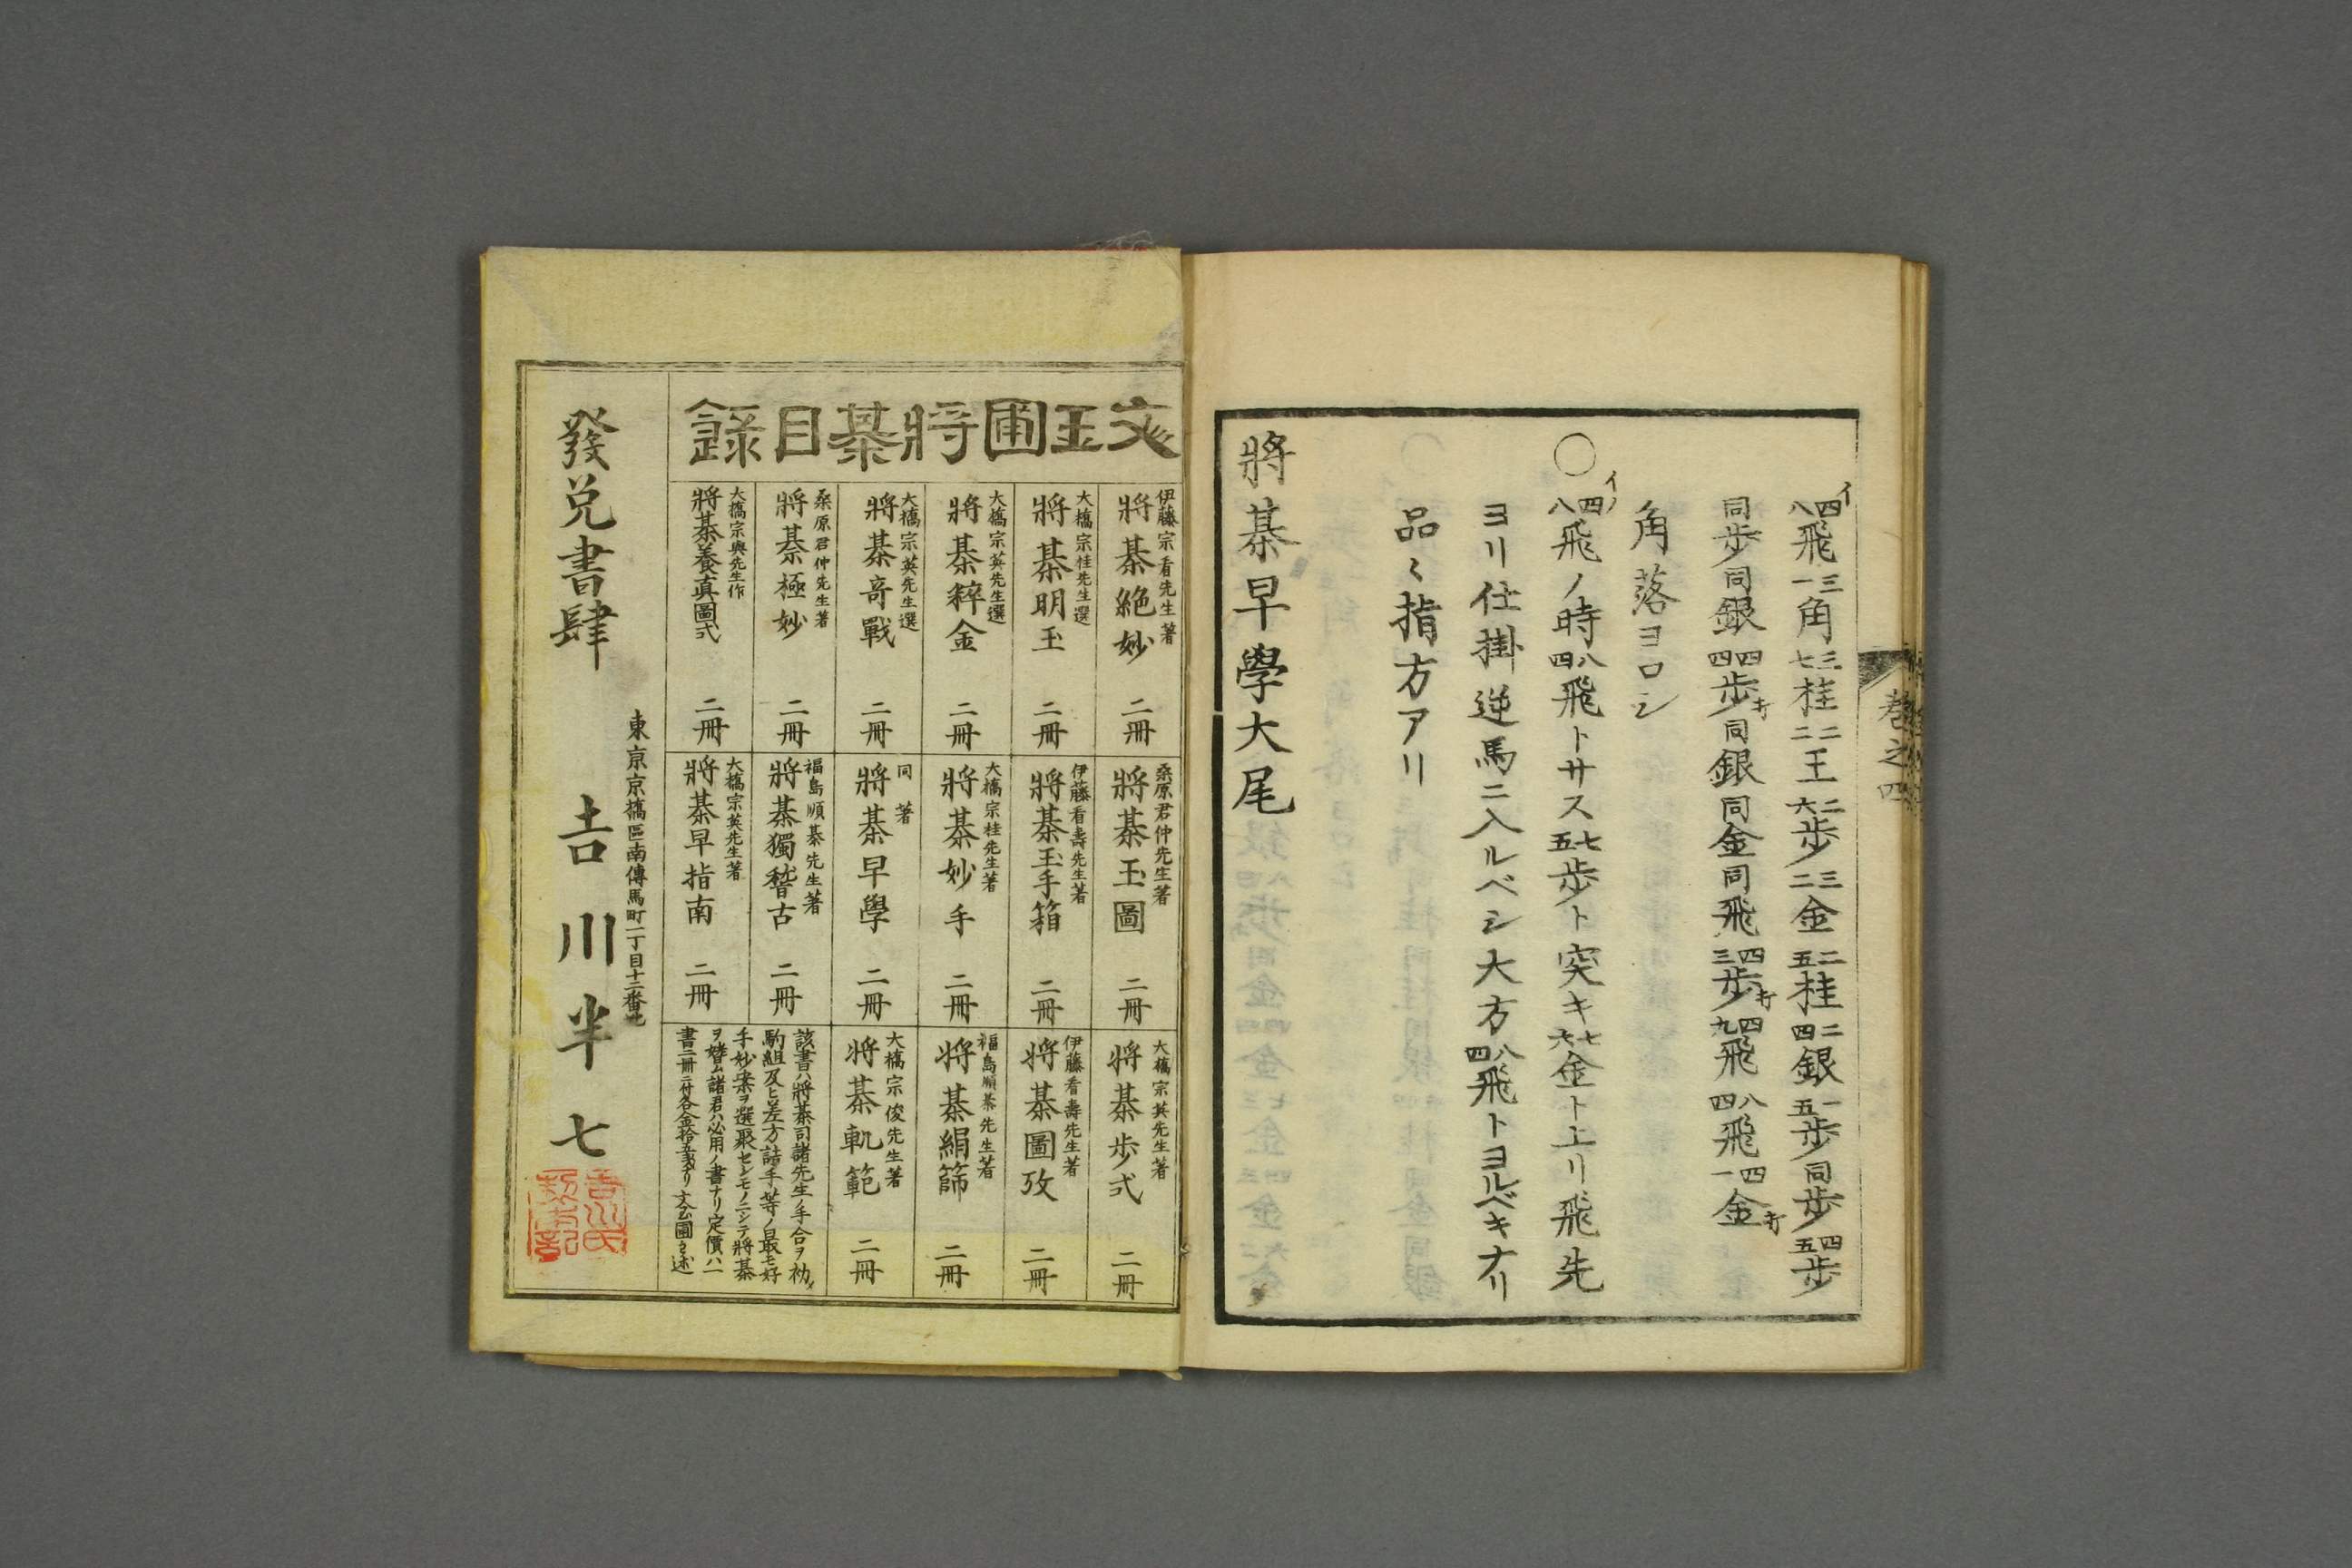 四八飛三一角三七桂二二王二六歩三二金二五桂二四銀一五歩同歩四五歩
同歩同銀四四歩同銀同金同飛四三歩四九飛八四飛四一金
角落ヨロシ
○四八飛ノ時八四飛トサス七五歩ト突キ七六金ト上リ飛先
ヨリ仕掛逆馬ニ入ルベシ大方八四飛トヨルベキナリ
品〻指方アリ
將棊早學大尾
卷之四
文玉圃將棊目錄
伊藤宗看先生著
將棊絶妙 二冊
大橋宗桂先生選
將棊明玉 二冊
大橋宗英先生選
將棊粹金 二冊
大橋宗英先生選
將棊奇戰 二冊
桑原君仲先生著
將棊極妙 二冊
大橋宗與先生作
將棊養真圖式 二冊
桑原君仲先生著
將棊玉圖 二冊
伊藤看壽先生著
將棊玉手箱 二冊
大橋宗桂先生著
將棊妙手 二冊
同 著
將棊早學 二冊
福島順棊先生著
將棊獨稽古 二冊
大橋宗英先生著
將棊早指南 二冊
大橋宗英先生著
將棊歩式 二冊
伊藤看壽先生著
將棊圖攷 二冊
福島順棊先生著
將棊絹篩 二冊
大橋宗俊先生著
將棊軌範 二冊
該書ハ將棊司諸先生ノ手合ヲ初メ
駒組及ヒ差方詰手等ノ最モ好
手妙案ヲ選聚セシモノニシテ將棊
ヲ嗜ム諸君ハ必用ノ書ナリ定價ハ一
書二冊ニ付各金拾五錢ナリ
發兌書肆
東京京橋區南傳馬町一丁目十二番地
吉川半七